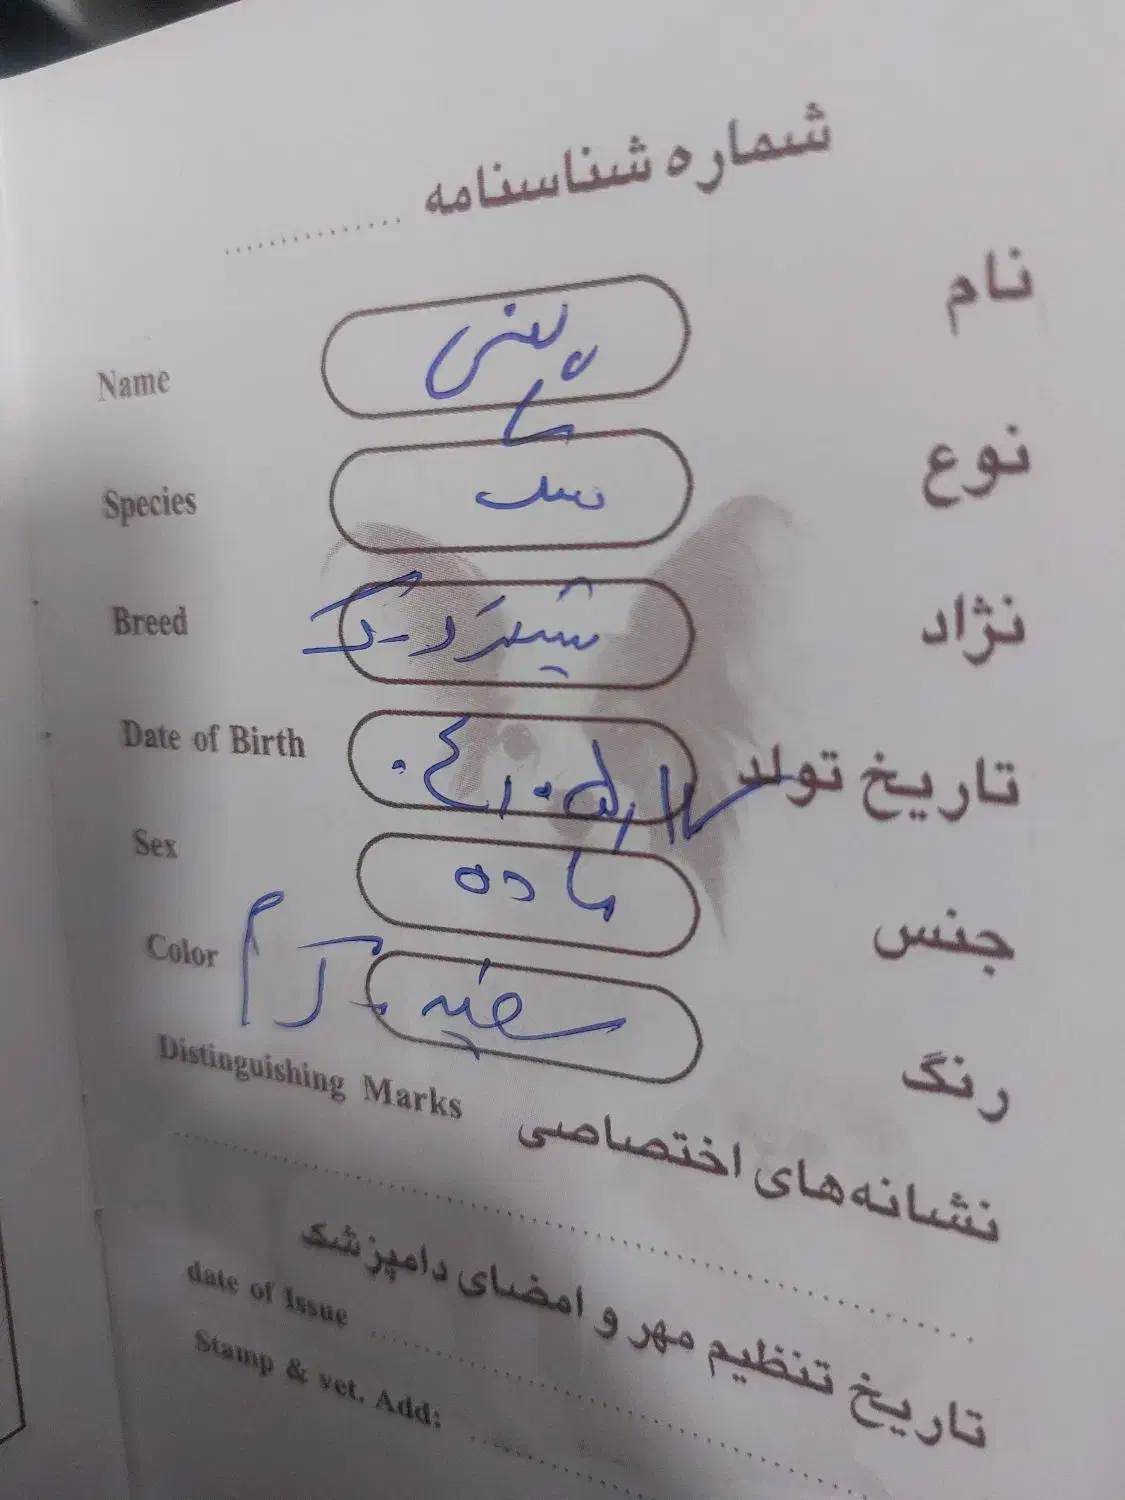 شماره شناسنامه ..............
نام
Name
نوع سگ Species
نژاد
Breed
تاریخ تولد
Date of Birth
جنس ماده Sex
رنگ سفید - کرم Color
نشانه‌های اختصاصی Distinguishing Marks
تاریخ تنظیم مهر و امضای دامپزشک
date of Issue
Stamp & vet. Add: